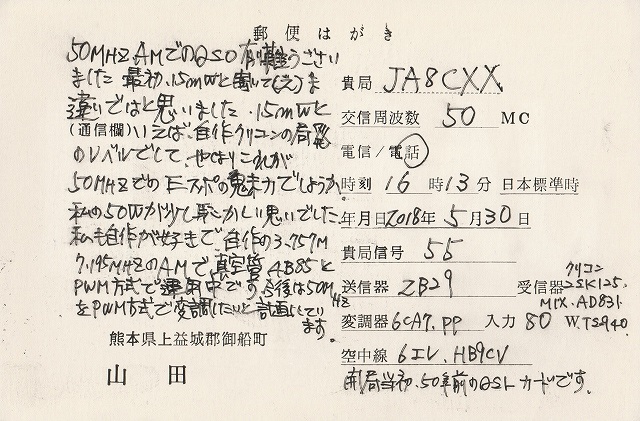 郵便はがき
50MHZ AMでのQSO有難うござい
ました 最初.15mWと聞いて(え)ま
違いではと思いました.15mWと
(通信欄)いえば、自作クリコンの局発
のレベルでして、やはりこれが
50MHZでのEスポの魅力でしょうか。
私の50Wが少し恥ずかしい思いでした
私も自作が好きで、自作の3.757M
7.195MHZのAMで真空管4B85と
PWM方式で運用中です。今後は50MHZ
をPWM方式で変調したいと計画しています。
熊本県上益城郡御船町
山田
貴局 JA8CXX
交信周波数 50 MC
電信/電話
時刻 16時13分 日本標準時
年月日2018年5月30日
貴局信号 55
送信器 2B29 受信器 クリコン 2SK125. MIX.AD831 W.TS940.
変調器 6CA7.PP 入力 80
空中線 6エレ.HB9CV
開局当初.50年前のQSLカードです。